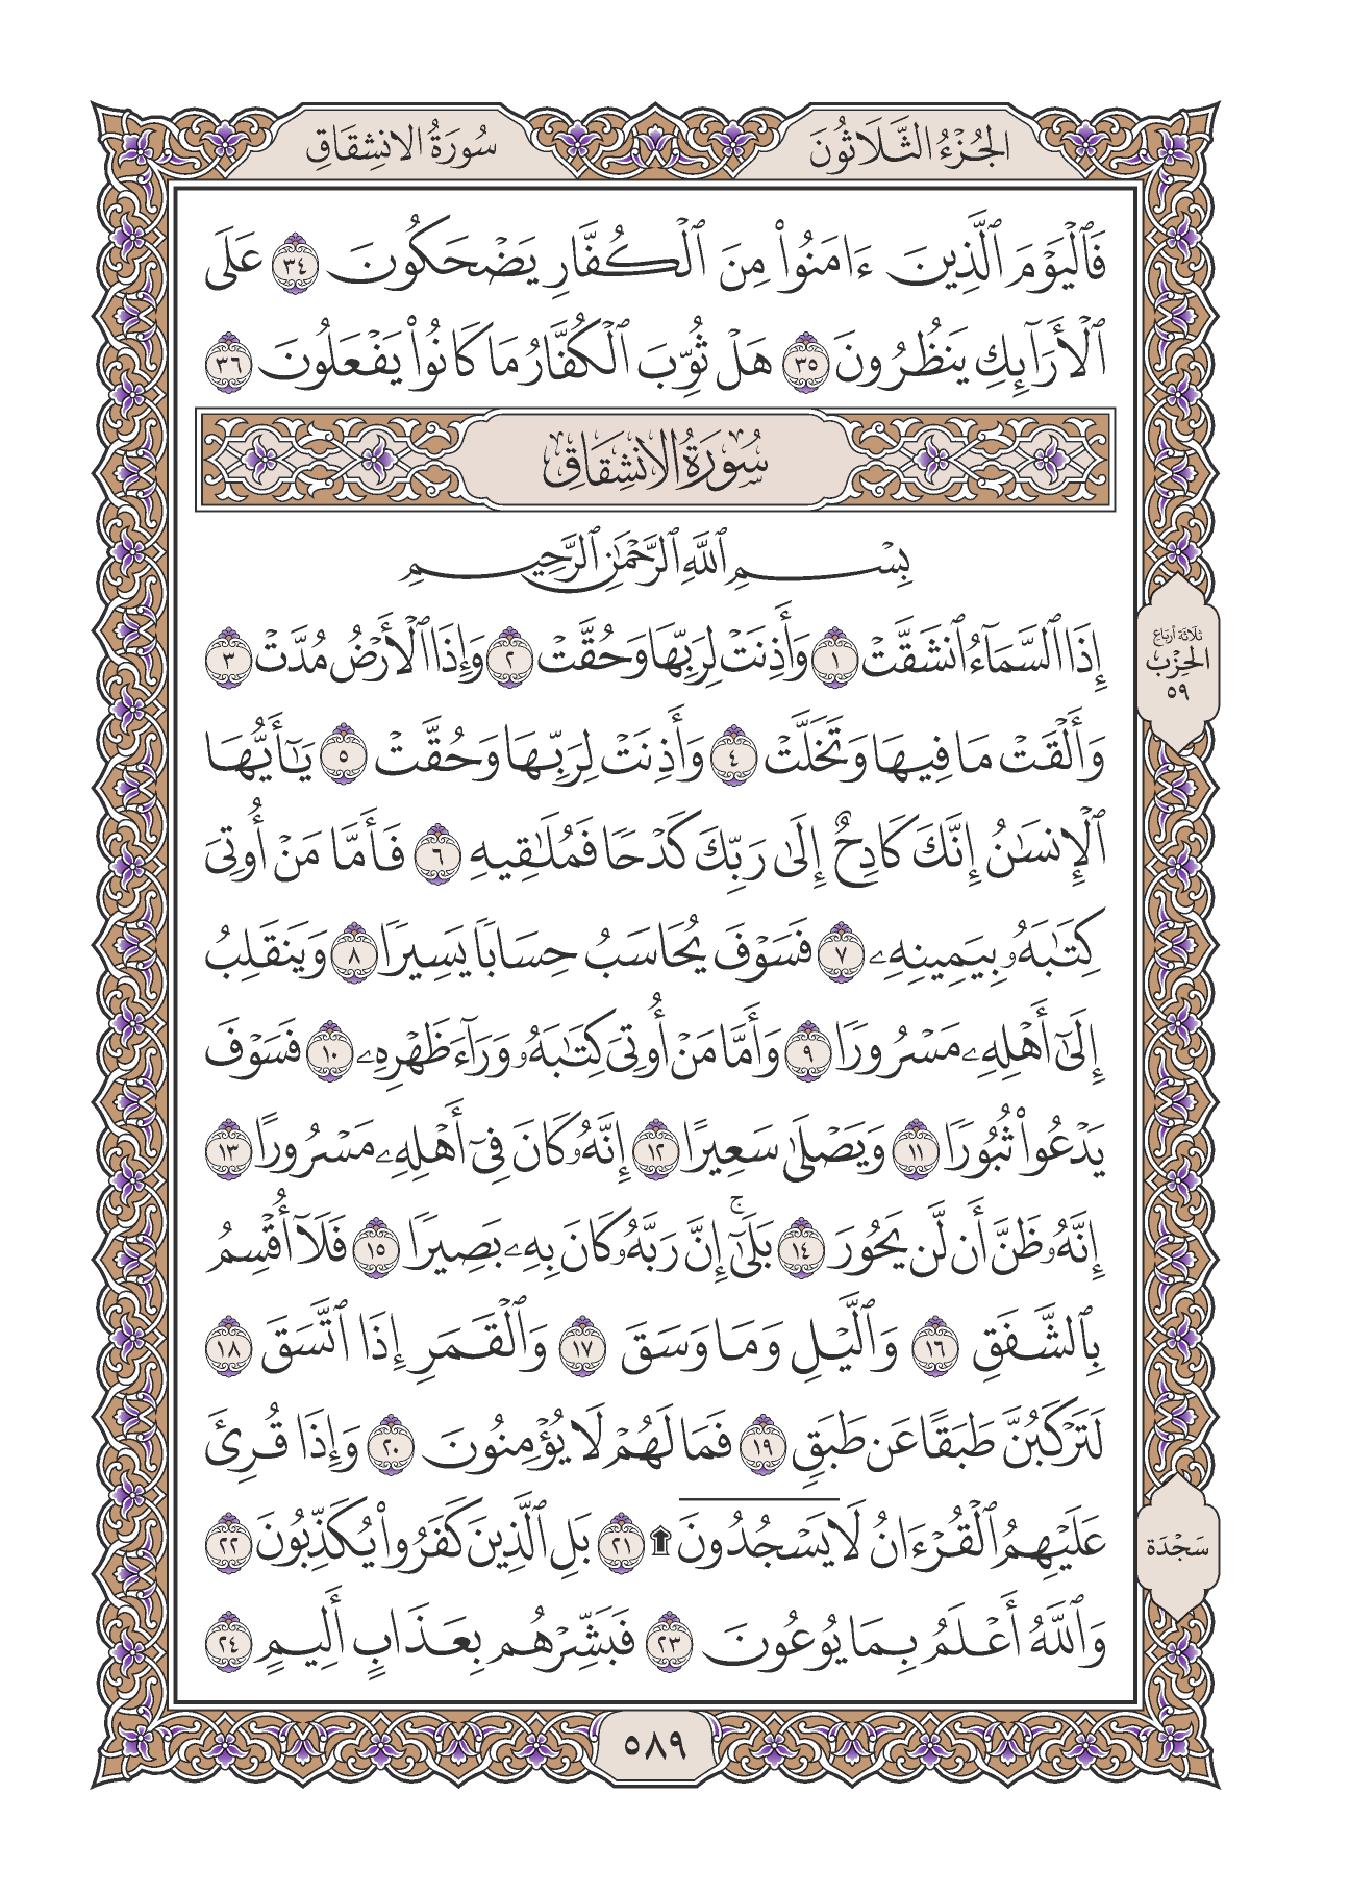 الجُزْءُ الثَّلَاثُونَ
سُورَةُ الانشِقَاقِ
فَٱلْيَوْمَ ٱلَّذِينَ ءَامَنُوا۟ مِنَ ٱلْكُفَّارِ يَضْحَكُونَ ٣٤ عَلَى
ٱلْأَرَآئِكِ يَنظُرُونَ ٣٥ هَلْ ثُوِّبَ ٱلْكُفَّارُ مَا كَانُوا۟ يَفْعَلُونَ ٣٦
سُورَةُ الانشِقَاقِ
بِسْمِ ٱللَّهِ ٱلرَّحْمَٰنِ ٱلرَّحِيمِ
إِذَا ٱلسَّمَآءُ ٱنشَقَّتْ ١ وَأَذِنَتْ لِرَبِّهَا وَحُقَّتْ ٢ وَإِذَا ٱلْأَرْضُ مُدَّتْ ٣
وَأَلْقَتْ مَا فِيهَا وَتَخَلَّتْ ٤ وَأَذِنَتْ لِرَبِّهَا وَحُقَّتْ ٥ يَٰٓأَيُّهَا
ٱلْإِنسَٰنُ إِنَّكَ كَادِحٌ إِلَىٰ رَبِّكَ كَدْحًا فَمُلَٰقِيهِ ٦ فَأَمَّا مَنْ أُوتِىَ
كِتَٰبَهُۥ بِيَمِينِهِۦ ٧ فَسَوْفَ يُحَاسَبُ حِسَابًا يَسِيرًا ٨ وَيَنقَلِبُ
إِلَىٰٓ أَهْلِهِۦ مَسْرُورًا ٩ وَأَمَّا مَنْ أُوتِىَ كِتَٰبَهُۥ وَرَآءَ ظَهْرِهِۦ ١٠ فَسَوْفَ
يَدْعُوا۟ ثُبُورًا ١١ وَيَصْلَىٰ سَعِيرًا ١٢ إِنَّهُۥ كَانَ فِىٓ أَهْلِهِۦ مَسْرُورًا ١٣
إِنَّهُۥ ظَنَّ أَن لَّن يَحُورَ ١٤ بَلَىٰٓۚ إِنَّ رَبَّهُۥ كَانَ بِهِۦ بَصِيرًا ١٥ فَلَآ أُقْسِمُ
بِٱلشَّفَقِ ١٦ وَٱلَّيْلِ وَمَا وَسَقَ ١٧ وَٱلْقَمَرِ إِذَا ٱتَّسَقَ ١٨
لَتَرْكَبُنَّ طَبَقًا عَن طَبَقٍ ١٩ فَمَا لَهُمْ لَا يُؤْمِنُونَ ٢٠ وَإِذَا قُرِئَ
عَلَيْهِمُ ٱلْقُرْءَانُ لَا يَسْجُدُونَ ۩ ٢١ بَلِ ٱلَّذِينَ كَفَرُوا۟ يُكَذِّبُونَ ٢٢
وَٱللَّهُ أَعْلَمُ بِمَا يُوعُونَ ٢٣ فَبَشِّرْهُم بِعَذَابٍ أَلِيمٍ ٢٤
ثَلَاثَةُ أَرْبَاعِ
الحِزْبِ
٥٩
سَجْدَة
٥٨٩